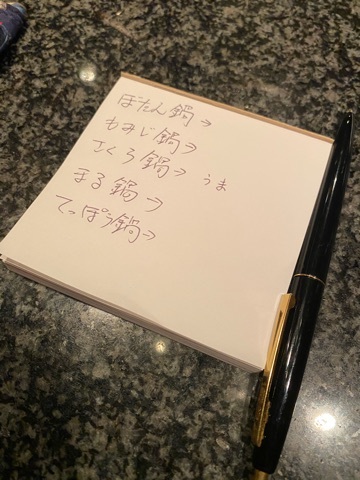 ぼたん鍋→
もみじ鍋→
さくら鍋→ うま
まる鍋→
てっぽう鍋→